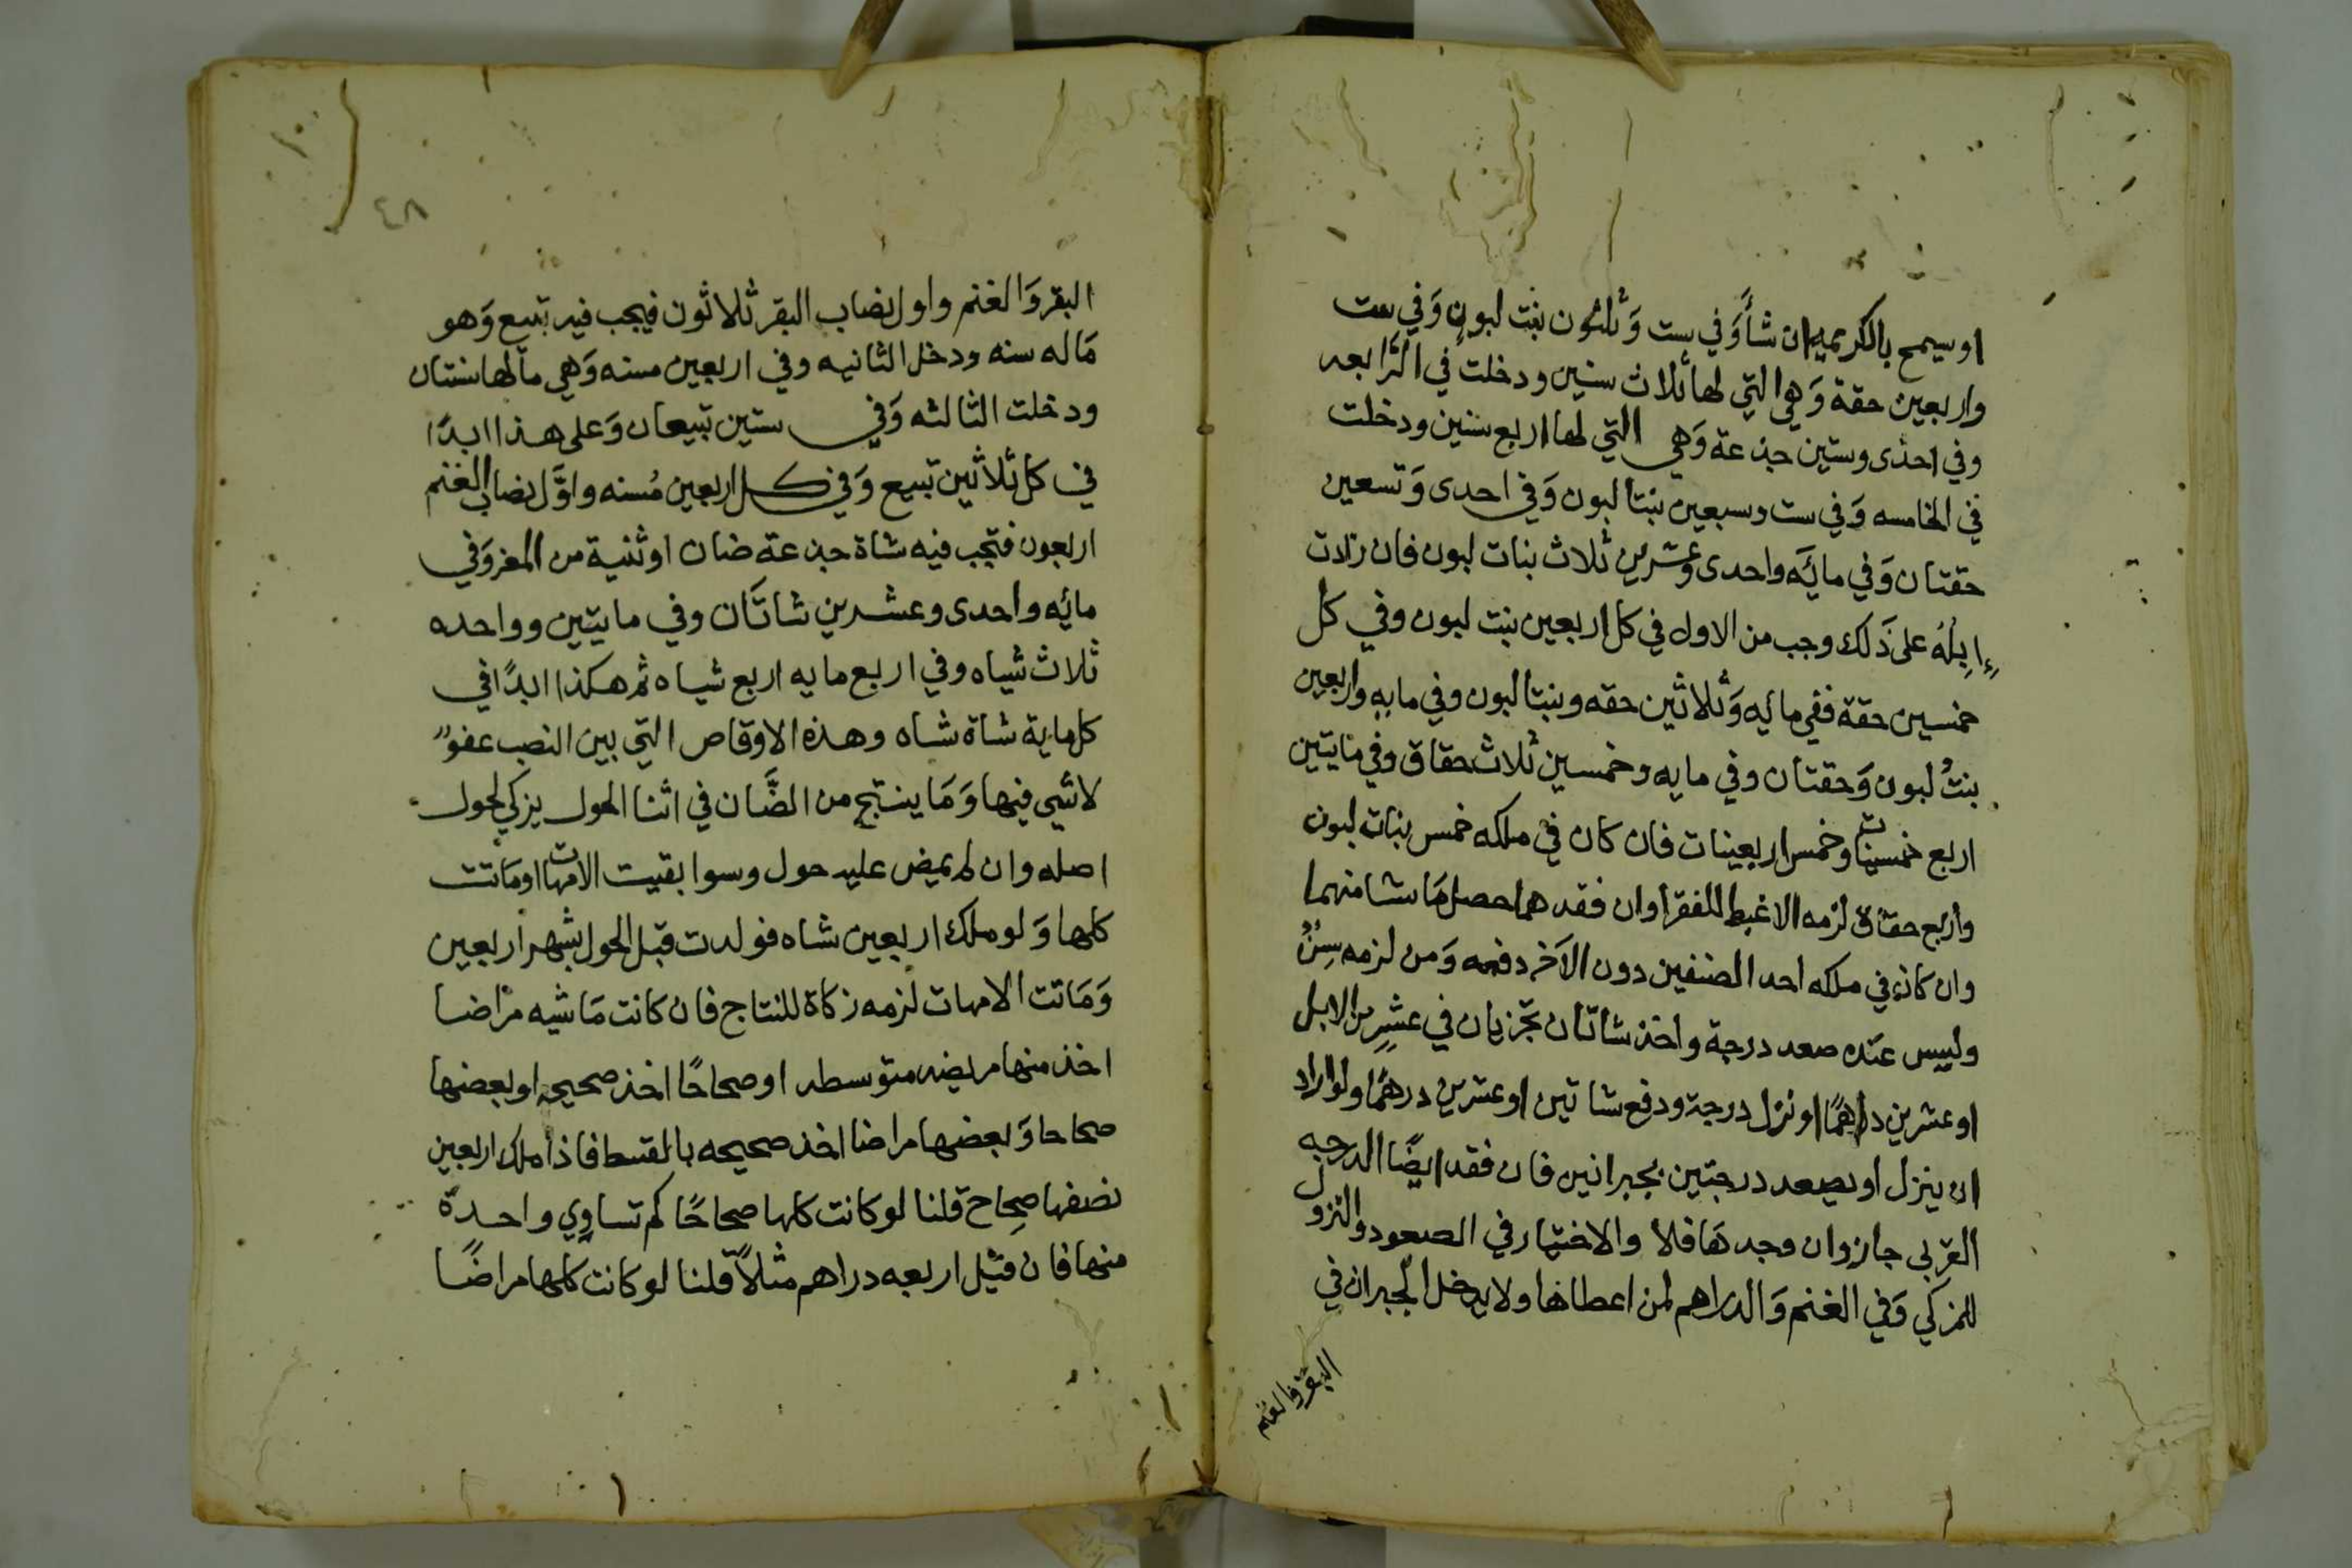 او سيمح بالكريميه ان شأ وَفي ست وَثلثون بنت لبونٍ وَفي ست
واربعين حقة وَهي التي لها ثلاث سنين ودخلت في الرَّابعه
وفي احدى وستين جذعة وَهي التي لها اربع سنين ودخلت
في الخامسه وَفي ست وسبعين بنتا لبون وَفي احدى وَتسعين
حقتان وَفي مائه واحدى وعشرين ثلاث بنات لبون فان زادت
إِبِلُهُ على ذَلك وجب من الاول في كل اربعين بنت لبون وفي كل
خمسين حقة ففي مائه وَثلاثين حقه وبنتا لبون وفي مايه واربعين
بنتُ لبون وَحقتان وفي مايه وخمسين ثلاث حقاق وفي مايتين
اربع خمسينات وخمس اربعينات فان كان في ملكه خمس بنات لبون
واربع حقاق لزمه الاغبط للفقرا وان فقدهما حصل مَا شا منهما
وان كان في ملكه احد الصنفين دون الآخر دفعه وَمن لزمه سِنٌّ
وليس عنده صعد درجة واخذ شاتان تجزيان في عشرٍ من الابل
او عشرين درهمًا او نزل درجة ودفع شاتين او عشرين درهمًا ولو اراد
ان ينزل او يصعد درجتين بجبرانين فان فقد ايضًا الدرجه
القربي جاز وان وجدهَا فلا والاختيار في الصعود والنزول
للمزكي وَفي الغنم وَالدراهم لمن اعطاها ولا يدخل الجبران في
البقر والغنم
٤٨
البقر وَالغنم واول نصاب البقر ثلاثون فيجب فيه تبيع وَهو
مَاله سنه ودخل الثانيه وفي اربعين مسنه وَهي ما لها سنتان
ودخلت الثالثه وَفي ستين تبيعان وَعلى هذا ابدًا
في كل ثلاثين تبيع وَفي كل اربعين مُسنه واوَّل نصاب الغنم
اربعون فتجب فيه شاة جذعة ضان او ثنية من المعز وَفي
مائه واحدى وعشرين شاتَان وفي مايتين وواحده
ثلاث شياه وفي اربع مايه اربع شياه ثم هكذا ابدًا في
كل ماية شاة شاه وهذه الاوقاص التي بين النصب عفوٌ
لا شي فيها وَمَا ينتج من الضَّان في اثنا الحول يزكي لحول
اصله وان لم يمض عليه حول وسوا بقيت الامهات او مَاتت
كلها وَلو ملك اربعين شاه فولدت قبل الحول بشهر اربعين
وَمَاتت الامهات لزمه زكاة للنتاج فان كانت مَاشيه مراضا
اخذ منها مريضه متوسطه او صحاحًا اخذ صحيحه او بعضها
صحاحا وَبعضها مراضا اخذ صحيحه بالقسط فاذا ملك اربعين
نصفها صِحاح قلنا لو كانت كلها صحاحًا كم تساوي واحدة
منها فان قيل اربعه دراهم مثلاً قلنا لو كانت كلها مراضًا